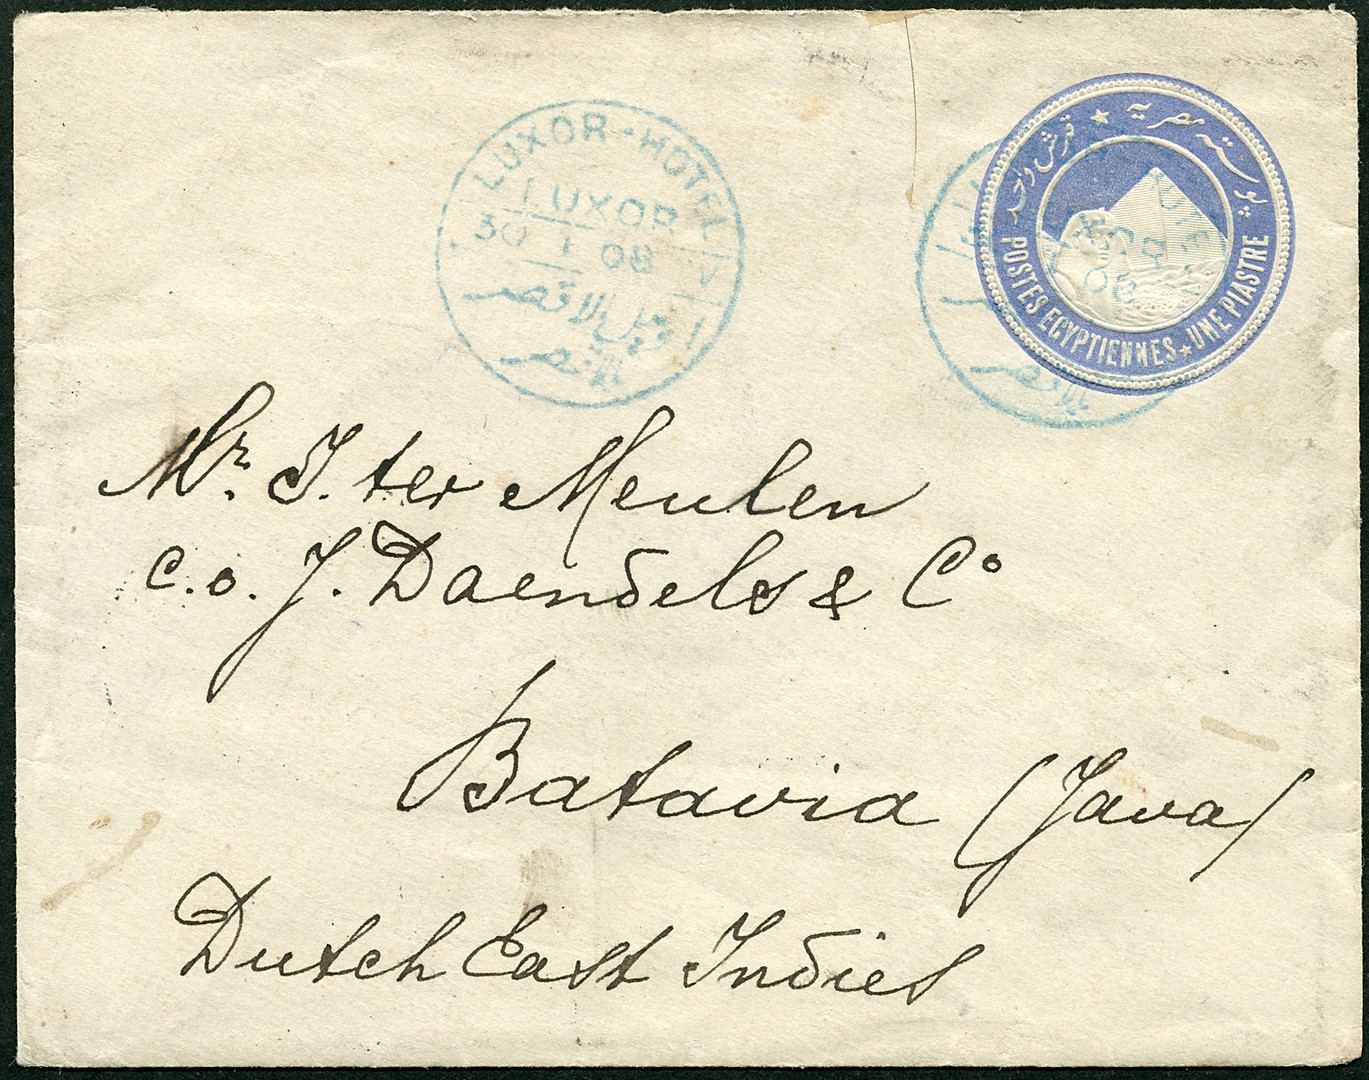 LUXOR-HOTEL
LUXOR
30 I 08
لوكاندة الاقصر
الاقصر
بوسته مصريه ★ قرش واحد
POSTES EGYPTIENNES ★ UNE PIASTRE
Mr. J. ter Meulen
c.o. J. Daendels & Co
Batavia (Java)
Dutch East Indies